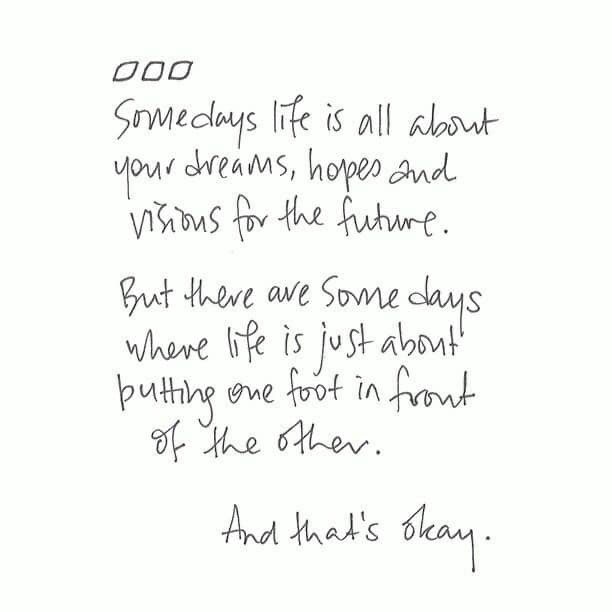 Some days life is all about
your dreams, hopes and
visions for the future.
But there are some days
where life is just about
putting one foot in front
of the other.
And that's okay.